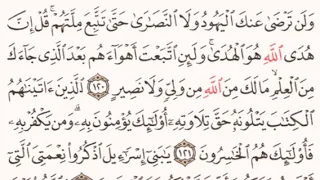 وَلَن تَرْضَىٰ عَنكَ ٱلْيَهُودُ وَلَا ٱلنَّصَٰرَىٰ حَتَّىٰ تَتَّبِعَ مِلَّتَهُمْ ۗ قُلْ إِنَّ
هُدَى ٱللَّهِ هُوَ ٱلْهُدَىٰ ۗ وَلَئِنِ ٱتَّبَعْتَ أَهْوَآءَهُم بَعْدَ ٱلَّذِى جَآءَكَ
مِنَ ٱلْعِلْمِ ۙ مَا لَكَ مِنَ ٱللَّهِ مِن وَلِىٍّ وَلَا نَصِيرٍ ١٢٠ ٱلَّذِينَ ءَاتَيْنَٰهُمُ
ٱلْكِتَٰبَ يَتْلُونَهُۥ حَقَّ تِلَاوَتِهِۦٓ أُو۟لَٰٓئِكَ يُؤْمِنُونَ بِهِۦ ۗ وَمَن يَكْفُرْ بِهِۦ
فَأُو۟لَٰٓئِكَ هُمُ ٱلْخَٰسِرُونَ ١٢١ يَٰبَنِىٓ إِسْرَٰٓءِيلَ ٱذْكُرُوا۟ نِعْمَتِىَ ٱلَّتِىٓ